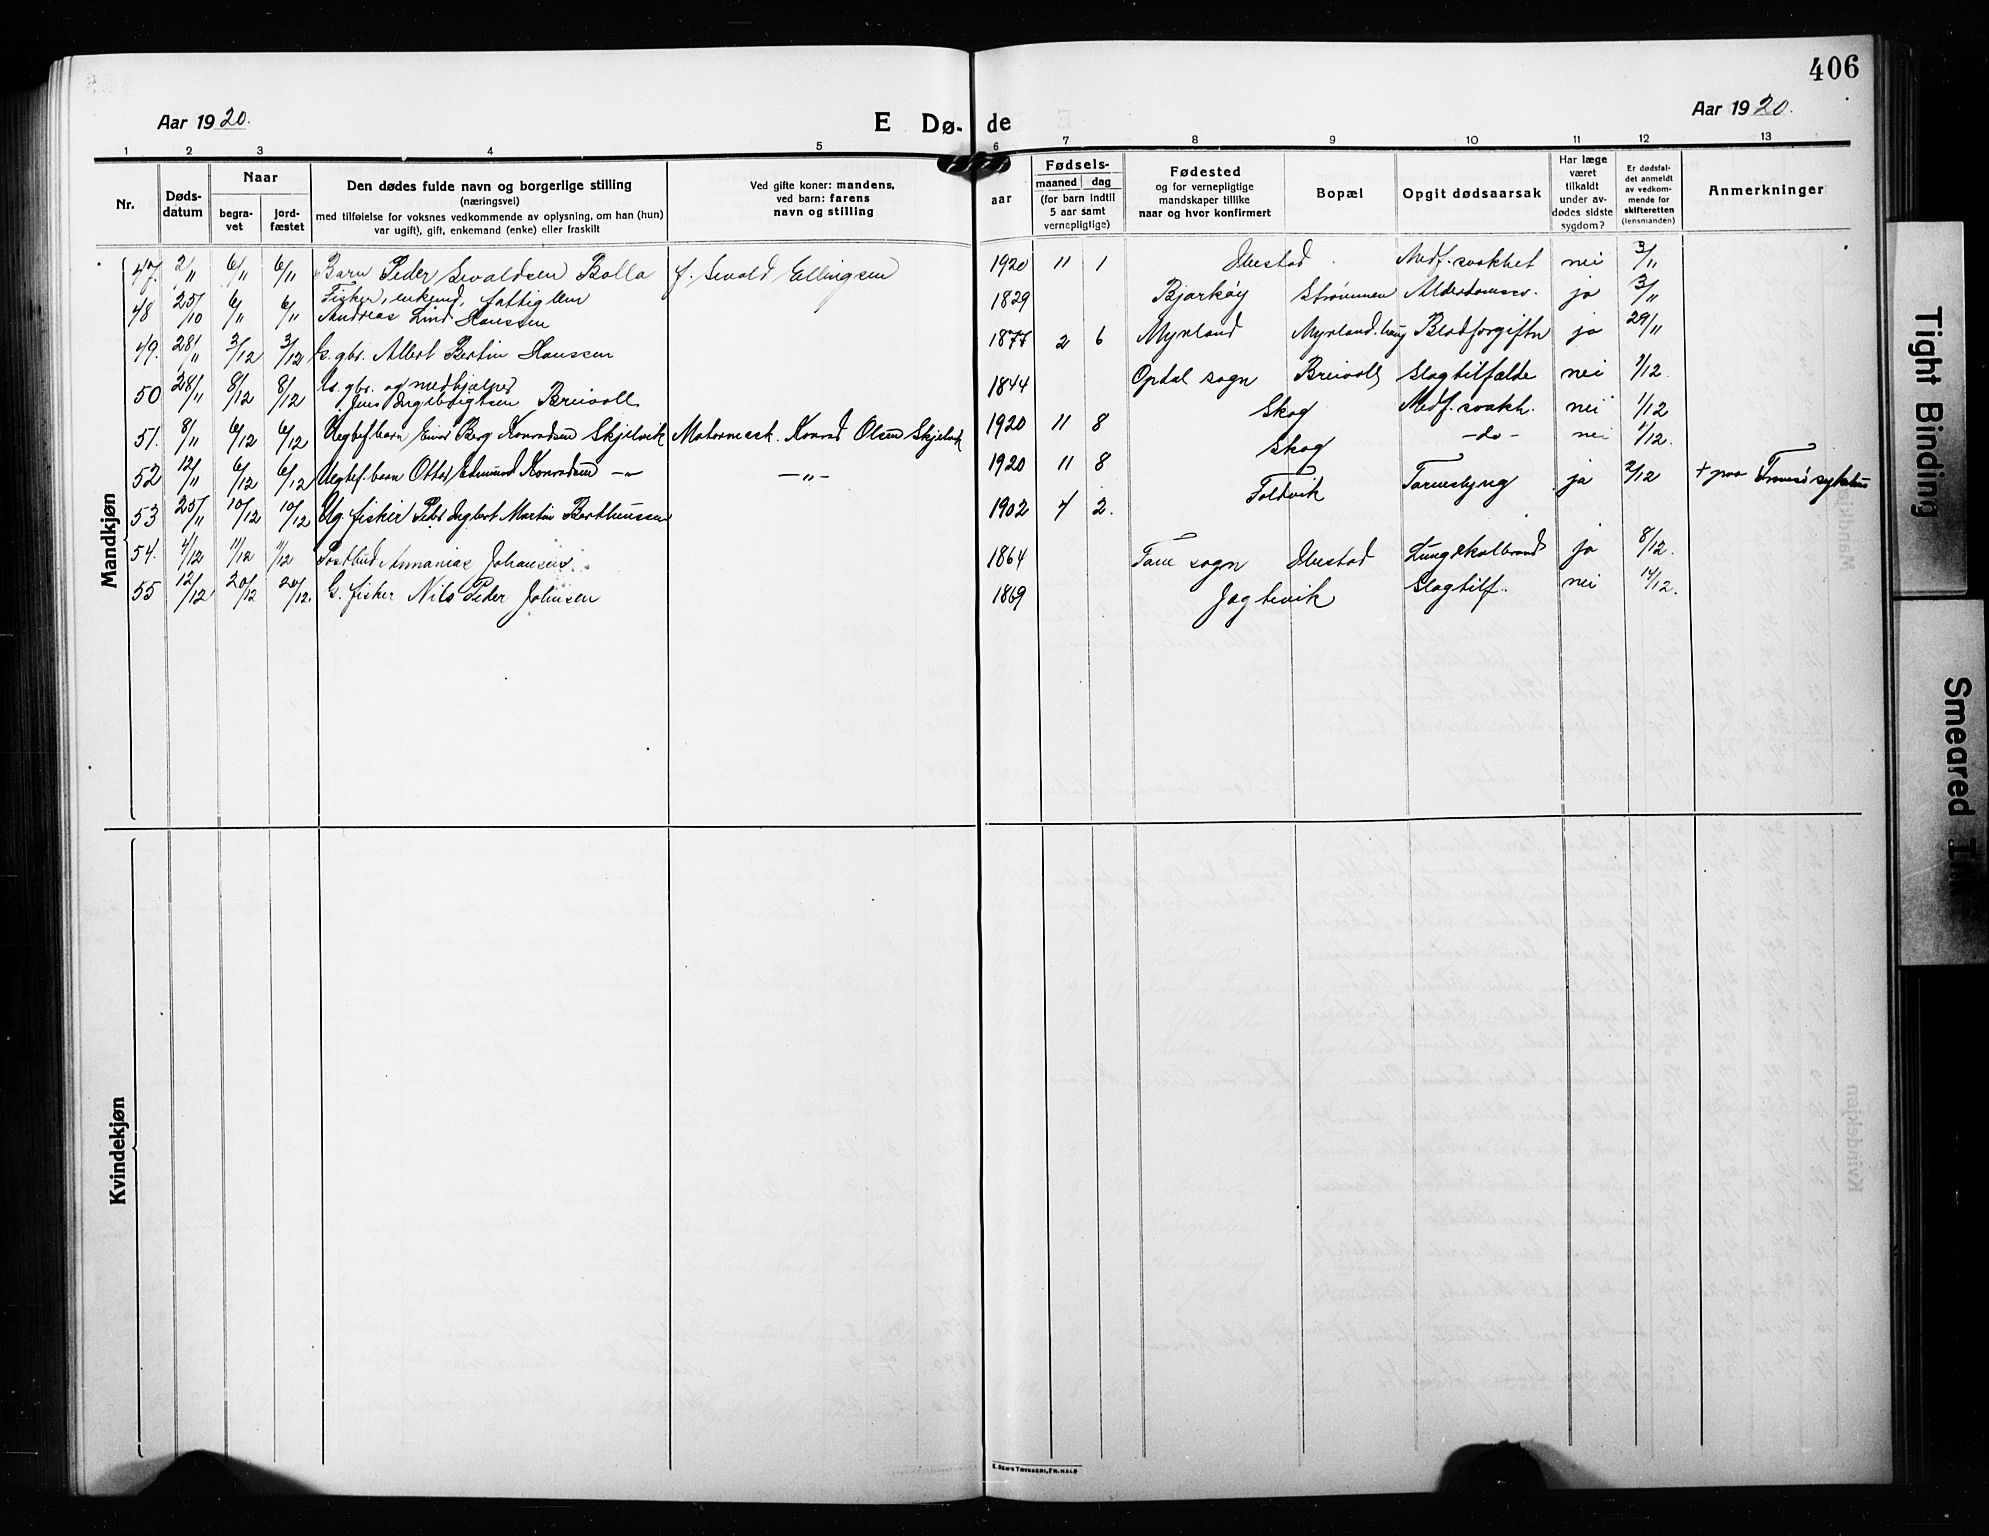 406
Aar 1920.
E Dø- de
Aar 1920.
1 2 3 4 5 6 7 8 9 10 11 12 13
Nr.
Døds-
datum
Naar
begra-
vet
jord-
fæstet
Den dødes fulde navn og borgerlige stilling
(næringsvei)
med tilføielse for voksnes vedkommende av oplysning, om han (hun)
var ugift), gift, enkemand (enke) eller fraskilt
Ved gifte koner: mandens,
ved barn: farens
navn og stilling
aar
Fødsels-
maaned dag
(for barn indtil
5 aar samt
vernepligtige)
Fødested
og for vernepligtige
mandskaper tillike
naar og hvor konfirmert
Bopæl
Opgit dødsaarsak
Har læge
været
tilkaldt
under av-
dødes sidste
sygdom?
Er dødsfal-
det anmeldt
av vedkom-
mende for
skifteretten
(lensmanden)
Anmerkninger
Mandkjøn
47. 2/11 6/11 6/11 Barn Peder Sevaldsen Bolla f. Sevald Ellingsen 1920 11 1 Ibestad Medf. svakhet nei 3/11
48 25/10 6/11 6/11 Fisker, enkemd, fattiglem
Andreas Lind Hanssen 1829 Bjarkøy Strømmen Alderdomssv. ja 3/11
49. 28/11 3/12 3/12 G. gbr. Albert Bertin Hanssen 1877 2 6 Myrland Myrland.haug Blodforgiftn ja 29/11
50 28/11 8/12 8/12 gbr. og medhjælper
Jens Ingebrigtsen Breivoll 1844 Opdal sogn Breivoll Slagtilfælde nei 1/12.
51. 8/11 6/12 6/12 Uegtef. barn Einar Berg Konradsen Skjelvik Motormest. Konrad Olsen Skjelvik 1920 11 8 Skog Medf. svakh. nei 1/12
52 12/11 6/12 6/12 Uegtef. barn Ottar Edmund Konradsen —"— —"— 1920 11 8 Skog —do— nei 1/12.
53 25/11 10/12 10/12 Ug. fisker Peder Ingbert Martin Bertheussen 1902 4 2. Foldvik Tarmslyng ja 2/12 + paa Tromsø sykehus
54. 4/12 11/12 11/12 Postbud Annanias Johansen 1864 Tane sogn Ibestad Lungekolbrand ja 8/12.
55 12/12 20/12 20/12. G. fisker Nils Peder Johnsen 1869 Jogtevik Slagtilf. nei 14/12.
Kvindekjøn
E. SEM'S TRYKKERI, FR.HALD
Tight Binding
Smeared Ink